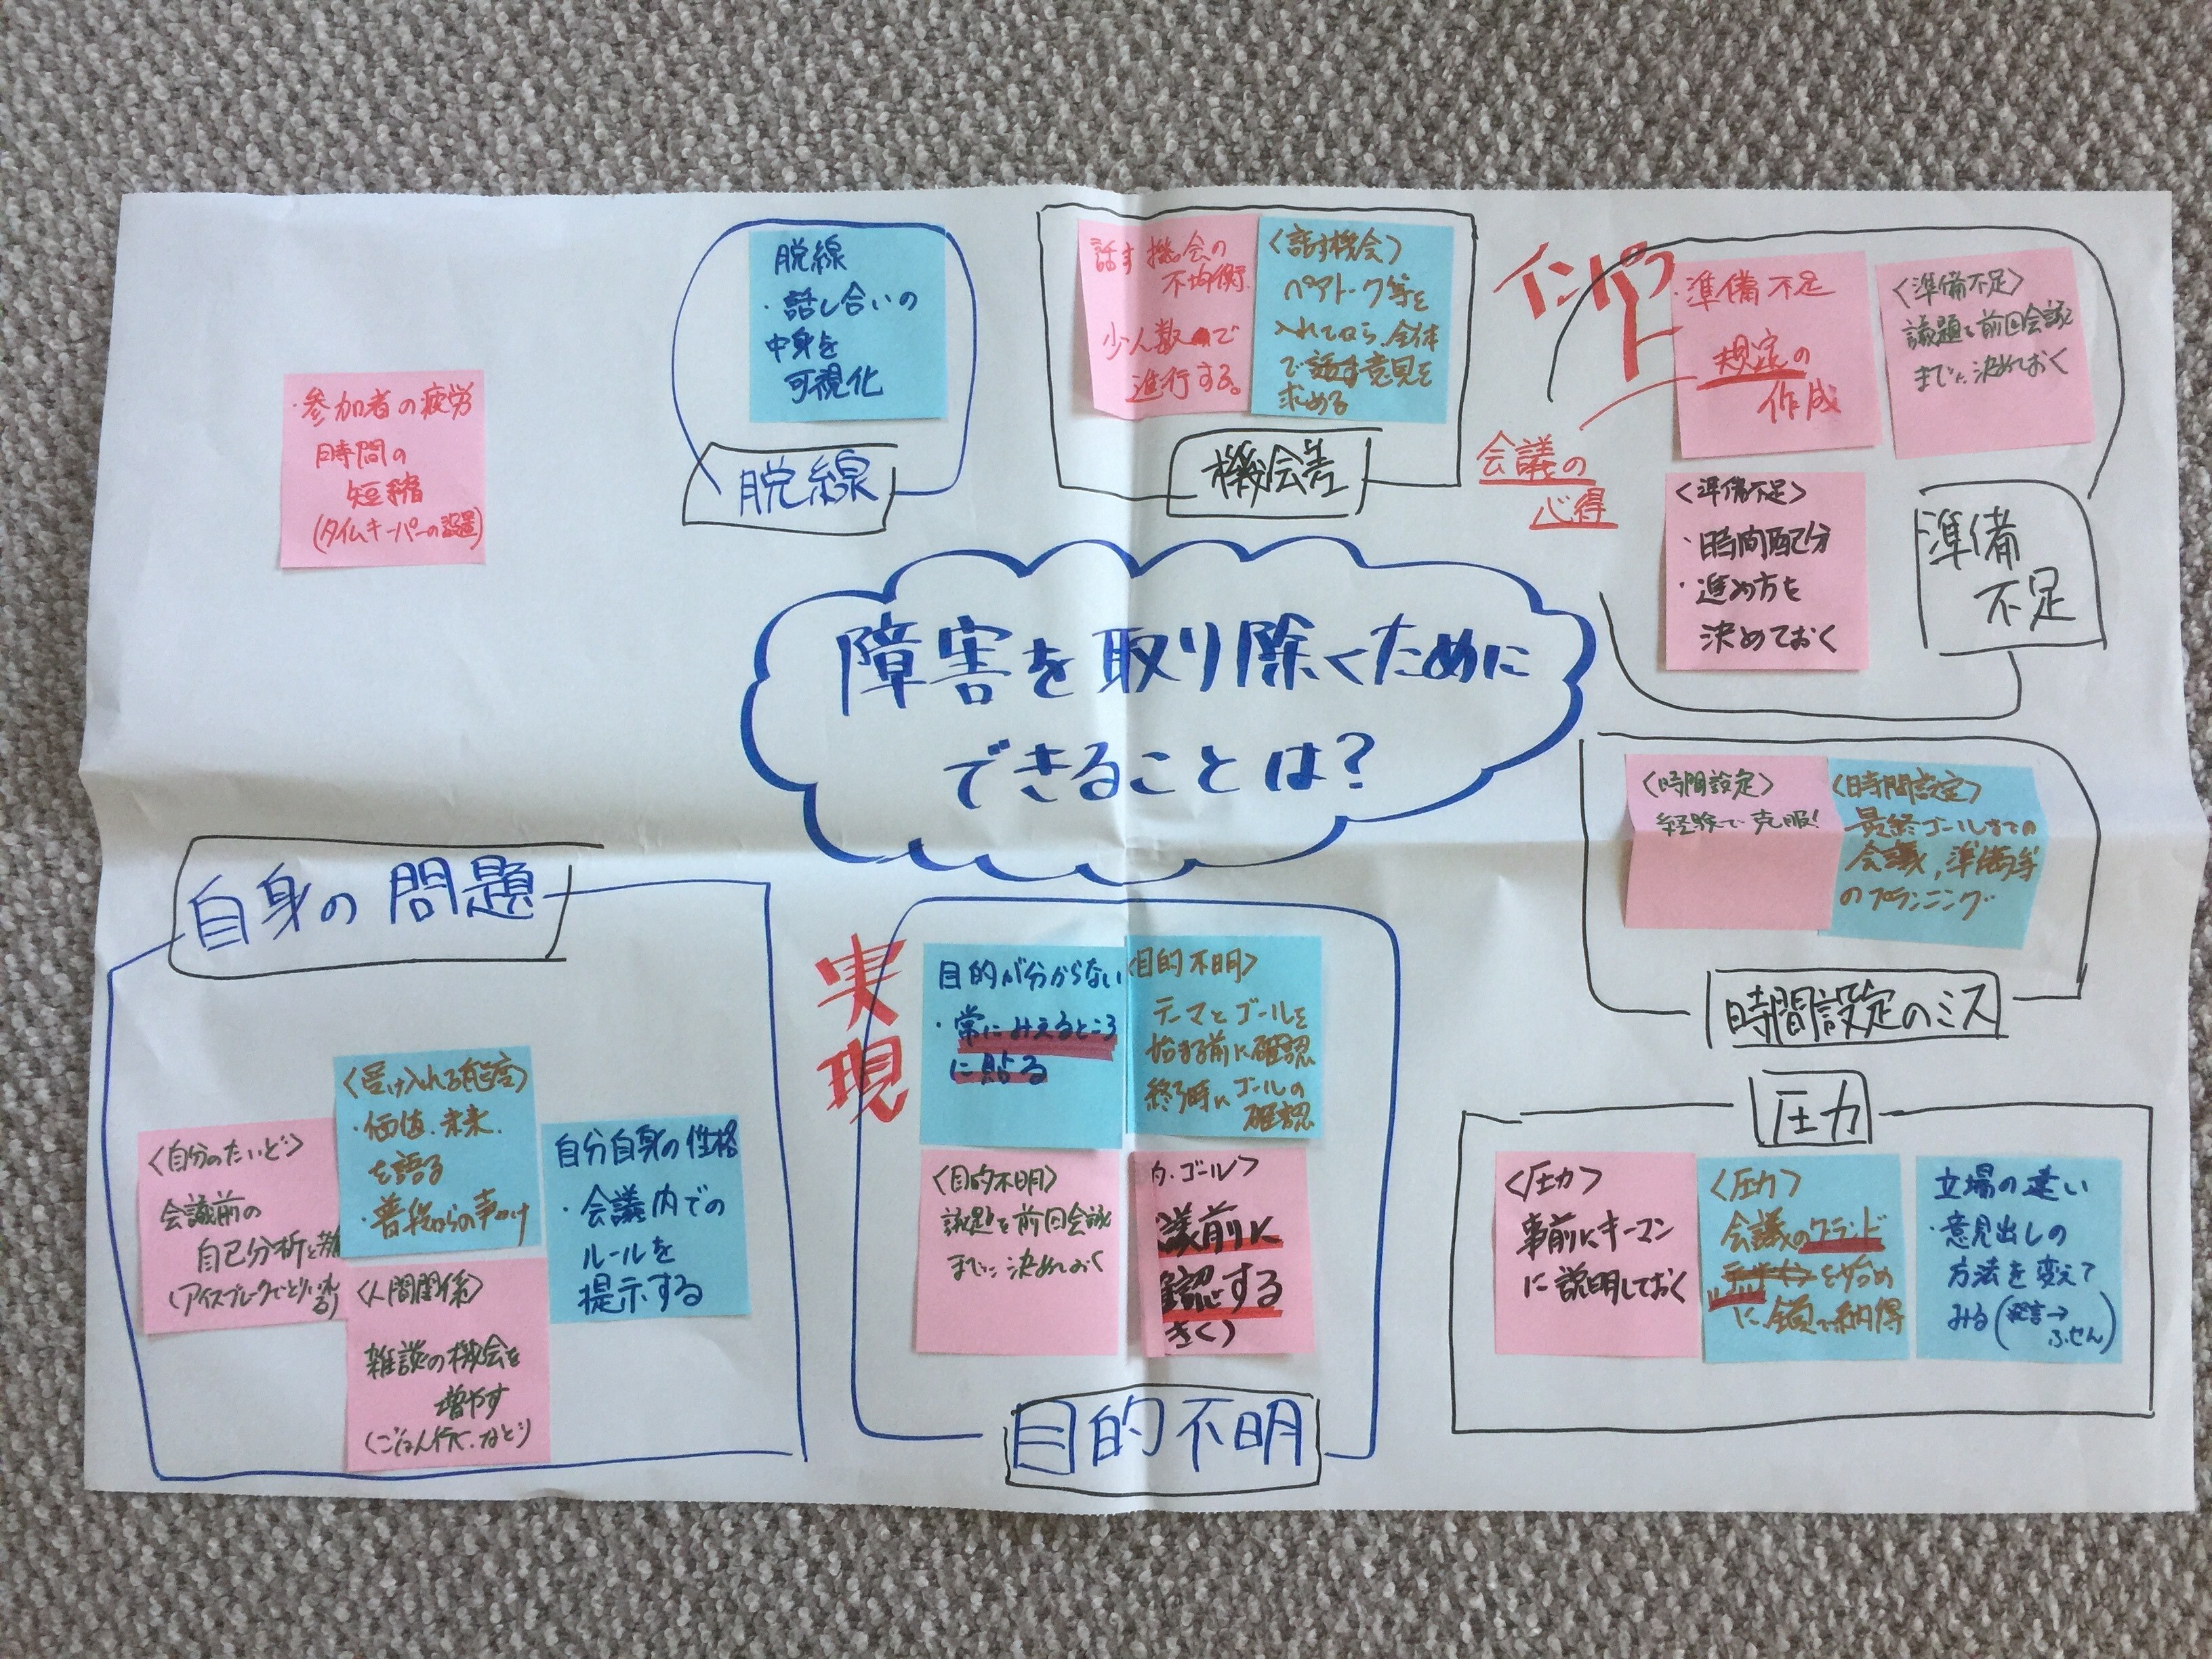 ・参加者の疲労
時間の
短縮
(タイムキーパーの設置)
脱線
・話し合いの
中身を
可視化
脱線
話す機会の
不均衡.
少人数で
進行する。
〈話す機会〉
ペアトーク等を
入れてから、全体
で話す意見を
求める
機会差
インパクト
・準備不足
規定の
作成
会議の
心得
〈準備不足〉
議題を前回会議
までに決めておく
〈準備不足〉
・時間配分
・進め方を
決めておく
準備
不足
障害を取り除くために
できることは?
〈時間設定〉
経験で克服!
〈時間設定〉
最終ゴールまでの
会議,準備等
のプランニング
時間設定のミス
自身の問題
〈自分のたいど〉
会議前の
自己分析と
(アイスブレークでとり入れる)
〈受け入れる態度〉
・価値.未来.
を語る
・普段からの声かけ
〈人間関係〉
雑談の機会を
増やす
(ごはん行く.など)
自分自身の性格
・会議内での
ルールを
提示する
実現
目的が分からない
・常にみえるところ
に貼る
〈目的不明〉
テーマとゴールを
始まる前に確認
終了時にゴールの
確認
〈目的不明〉
議題を前回会議
までに決めておく
・ゴール〉
議前に
確認する
きく)
目的不明
圧力
〈圧力〉
事前にキーマン
に説明しておく
〈圧力〉
会議のグランド
を始め
に全員で納得
立場の違い
・意見出しの
方法を変えて
みる(発言→
ふせん)